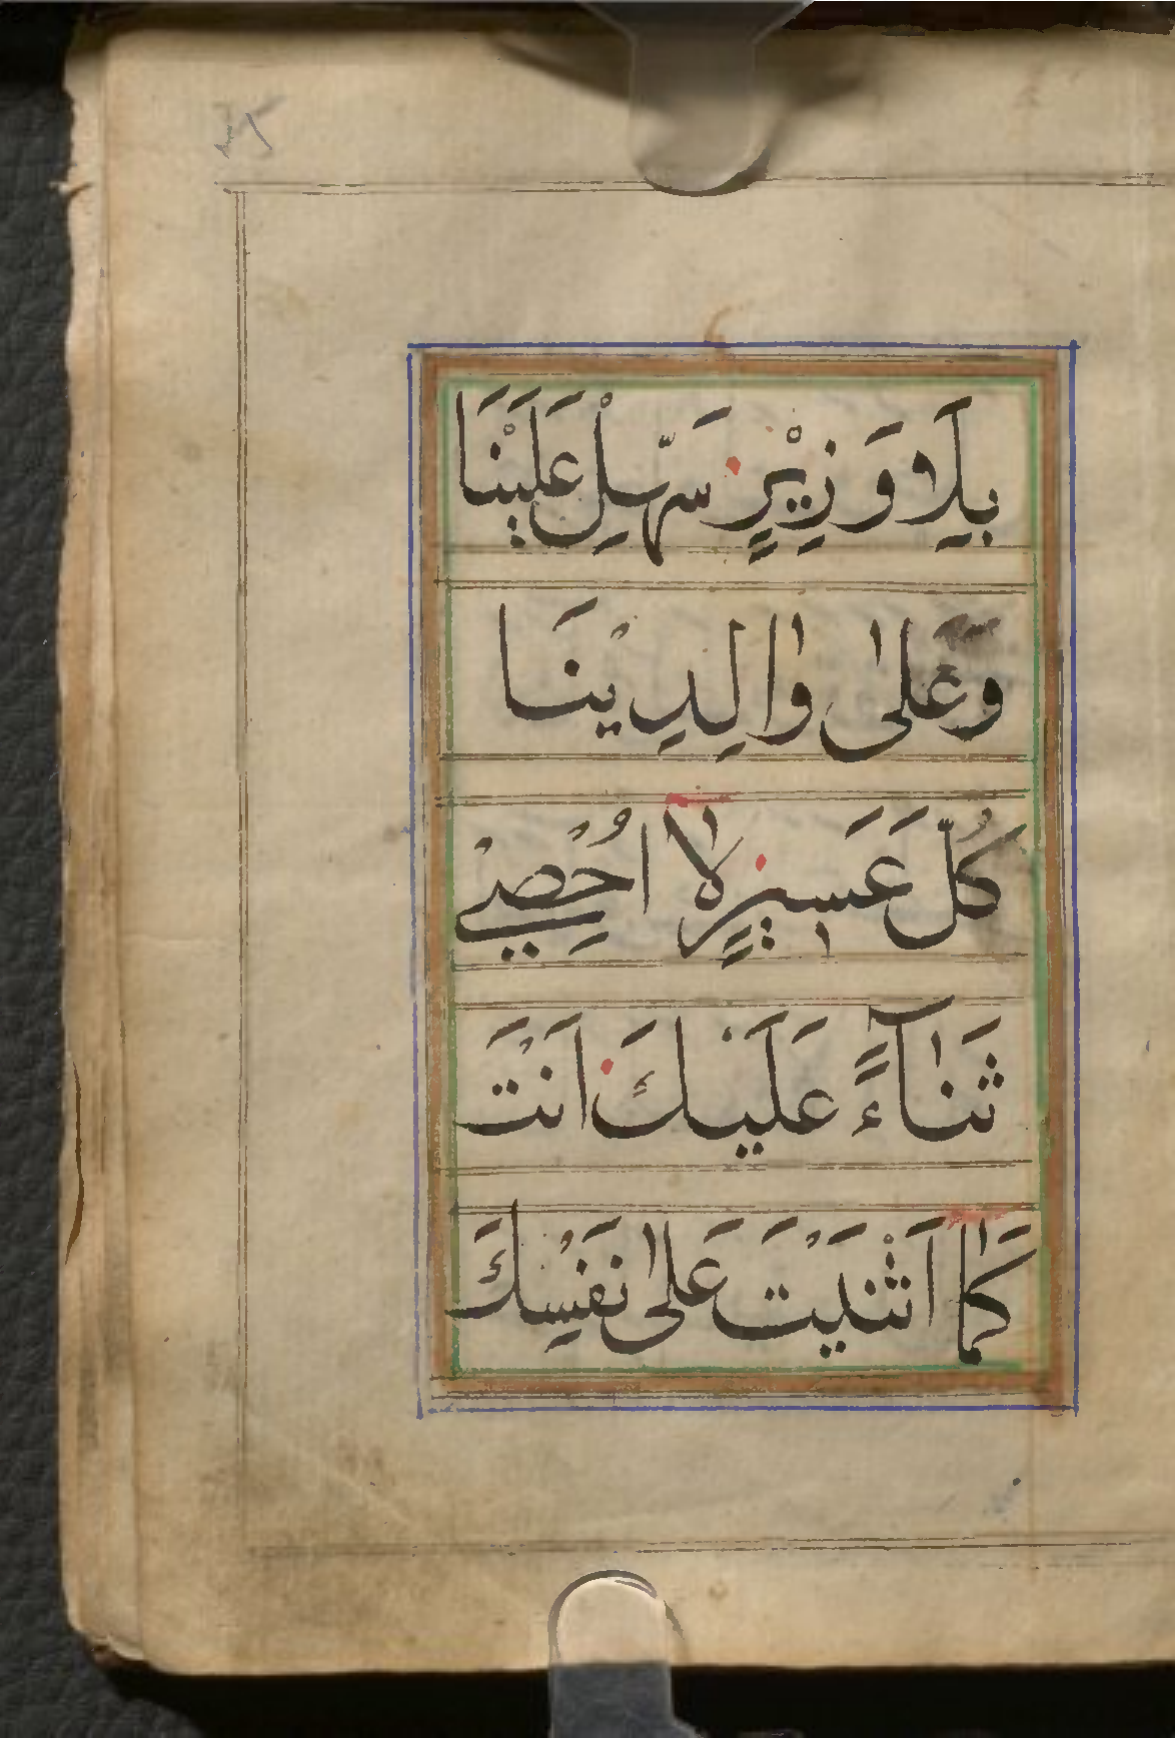 بِلَا وَزِيْرٍ سَهِّلْ عَلَيْنَا
وَعَلٰى وٰالِدِيْنَا
كُلَّ عَسِيْرٍ لٰا اُحْصِيْ
ثَنٰآءً عَلَيْكَ اَنْتَ
كَمٰا اَثْنَيْتَ عَلٰى نَفْسِكَ